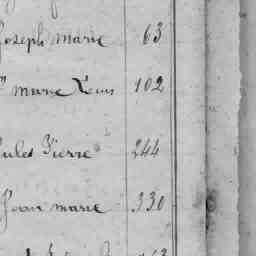 Joseph marie 63
marie Louis 102
Jules Pierre 244
Jean marie 330